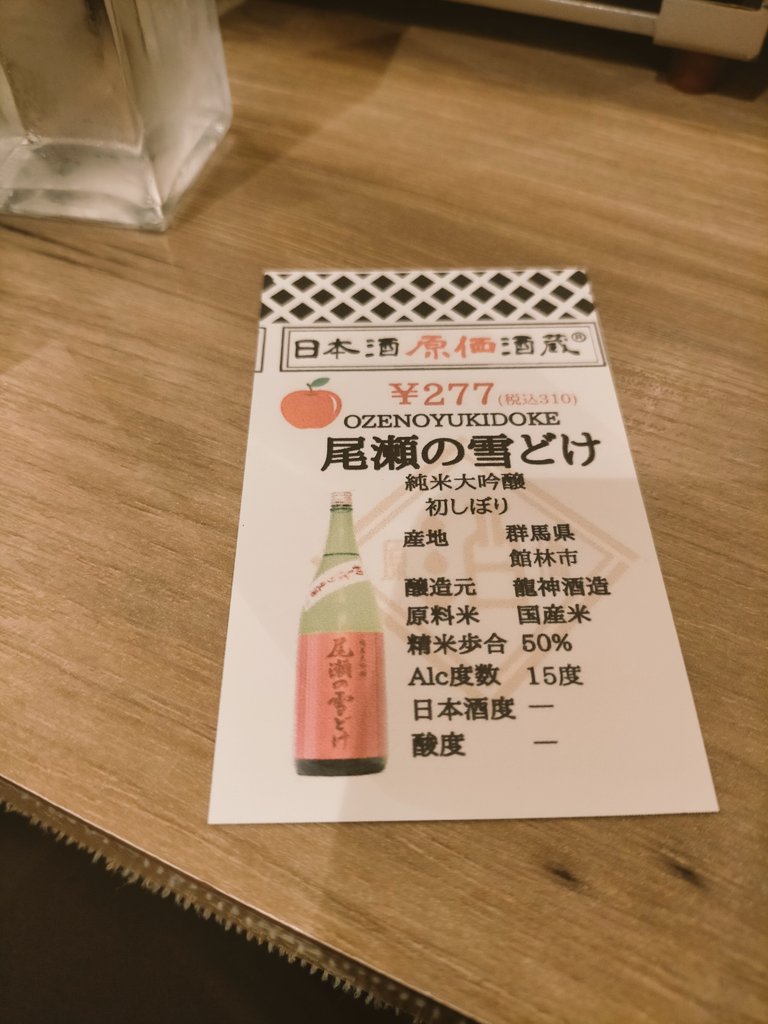 日本酒原価酒蔵®
¥277(税込310)
OZENOYUKIDOKE
尾瀬の雪どけ
純米大吟醸
初しぼり
産地 群馬県
館林市
醸造元 龍神酒造
原料米 国産米
精米歩合 50%
Alc度数 15度
日本酒度 ー
酸度 ー
尾瀬の雪どけ